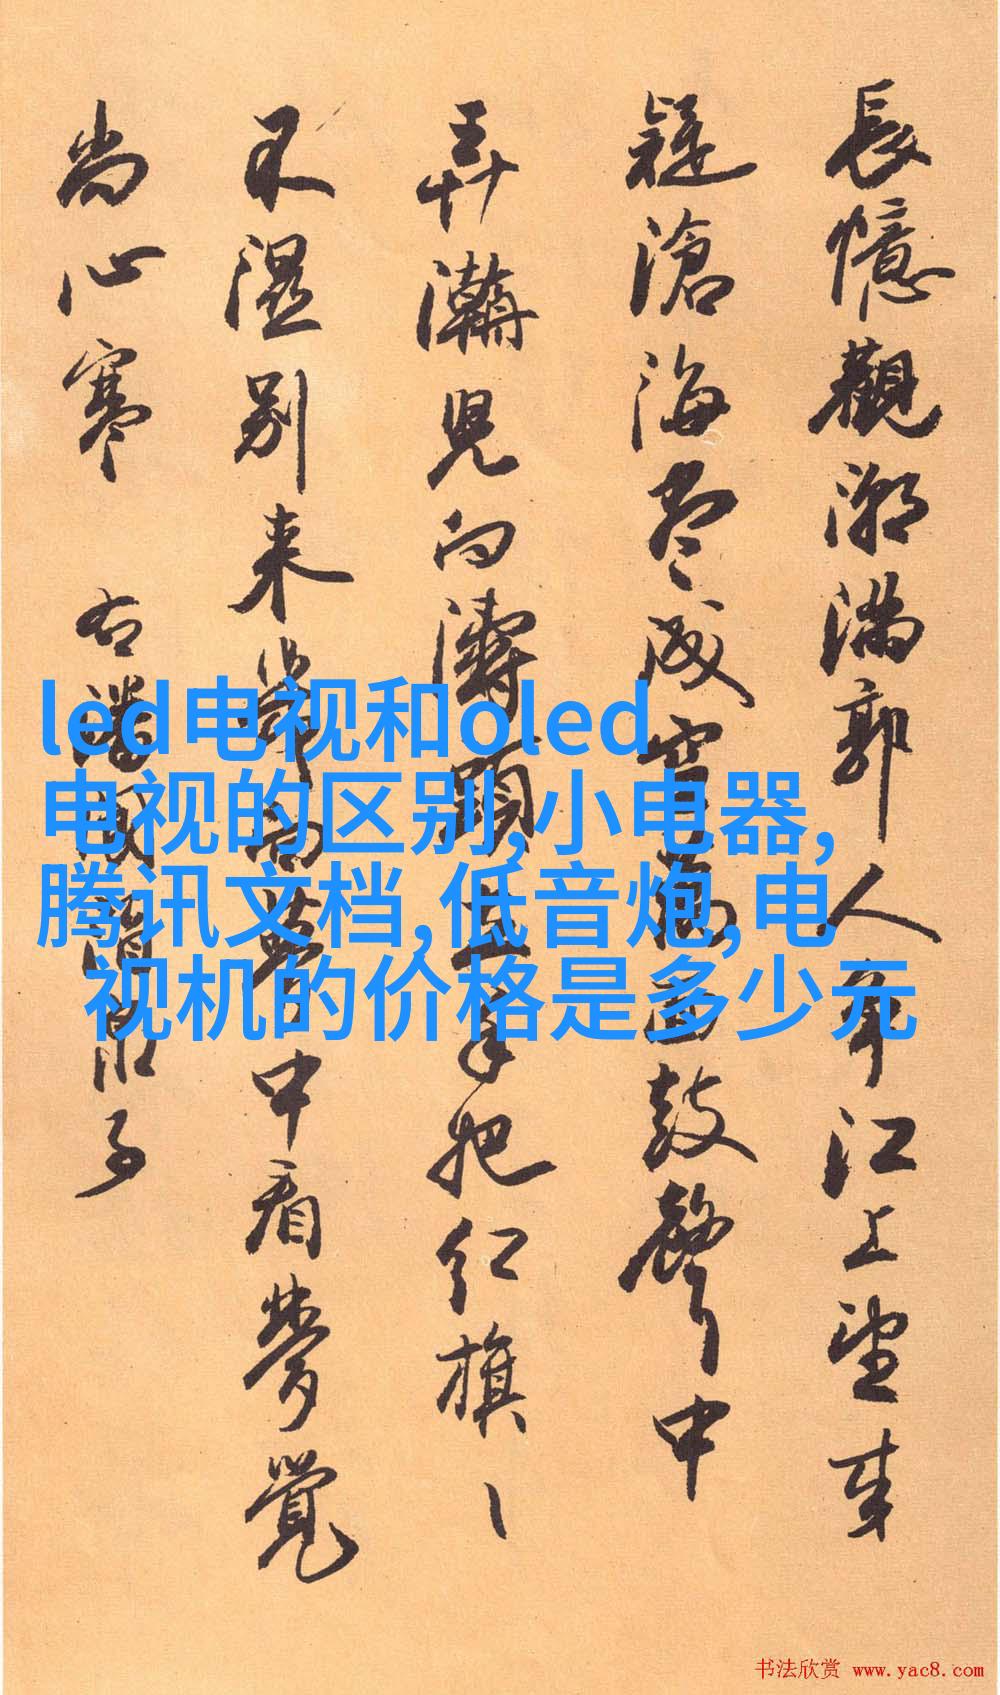 長憶觀潮滿郭人爭江上望来
疑滄海尽成空萬面鼓聲中
弄濤児向濤頭立手把红旗丶
不濕别来幾向夢中看夢覺
尚心寒 右潘閬酒泉子
led电视和oled
电视的区别,小电器,
腾讯文档,低音炮,电
视机的价格是多少元
书法欣赏 www.yac8.com